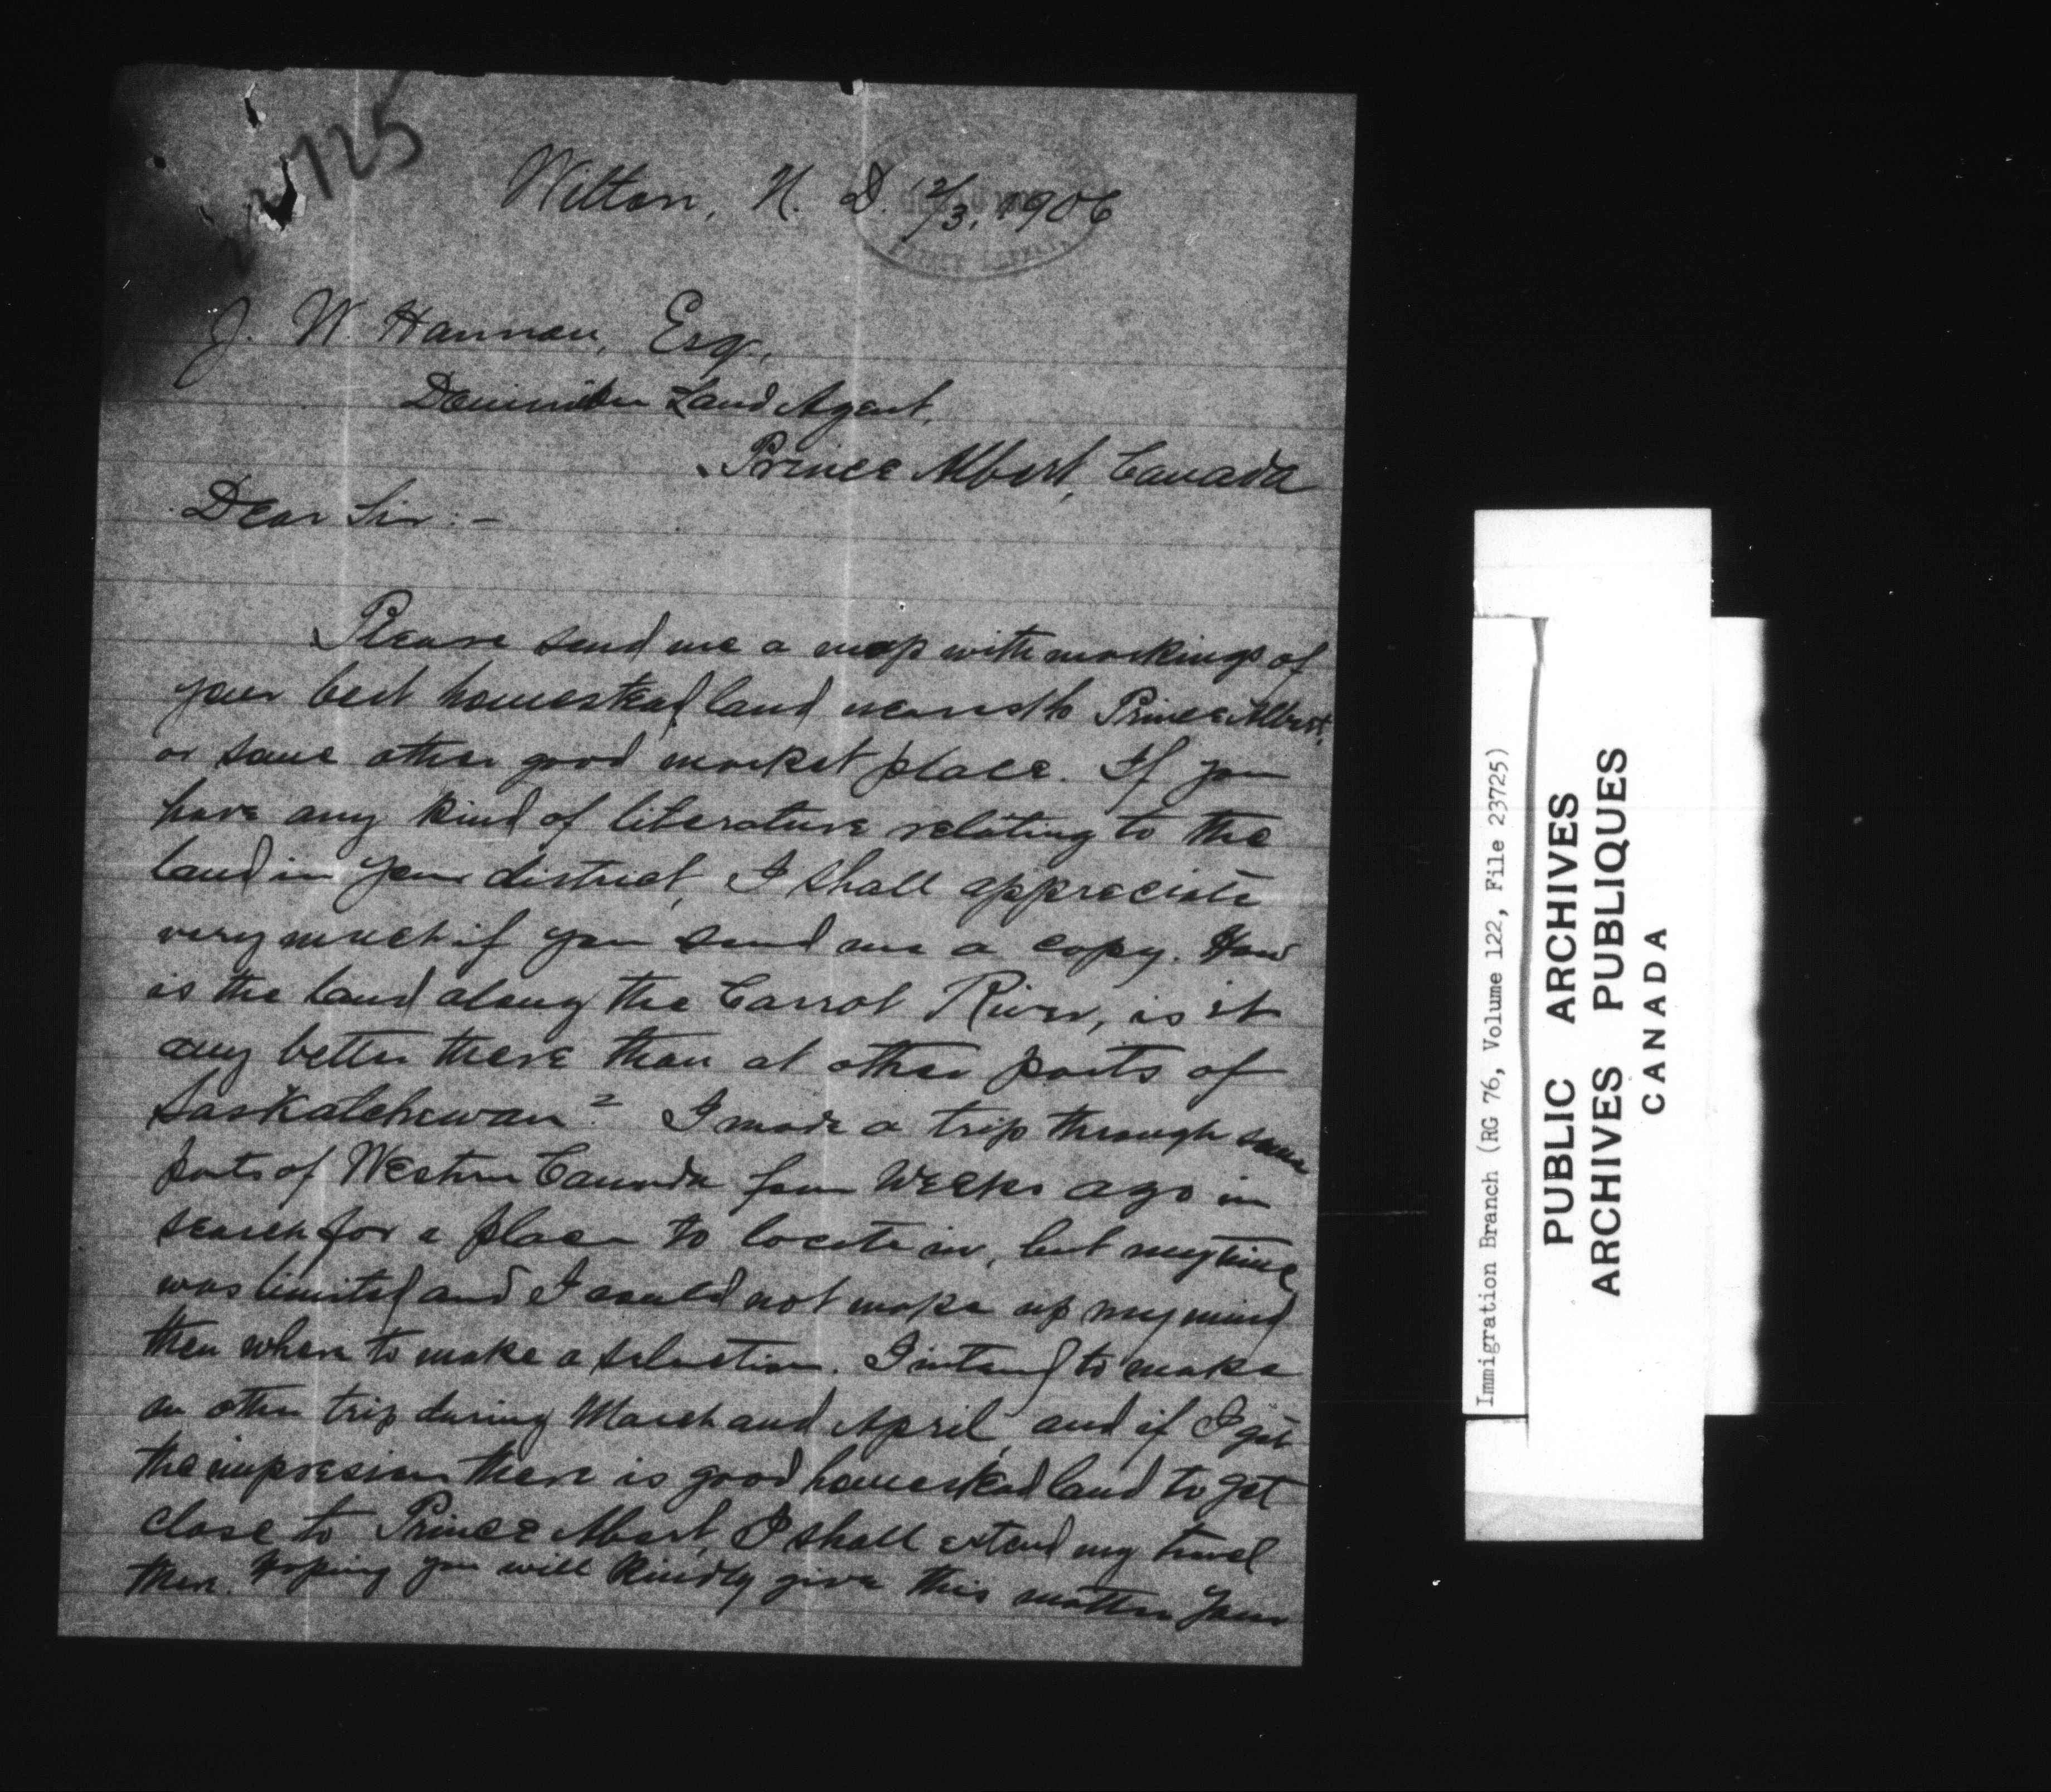 725
Wilton, N. D. 2/3, 1906
J. W. Hannan, Esq.,
Dominion Land Agent,
Prince Albert, Canada
Dear Sir:-
Please send me a map with markings of
your best homestead land nearest to Prince Albert,
or some other good market place. If you
have any kind of literature relating to the
land in your district, I shall appreciate
very much if you send me a copy. How
is the land along the Carrot River, is it
any better there than at other parts of
Saskatchewan? I made a trip through some
parts of Western Canada few weeks ago in
search for a place to locate in, but my time
was limited and I could not make up my mind
then where to make a selection. I intend to make
an other trip during March and April, and if I get
the impresion there is good homestead land to get
close to Prince Albert, I shall extend my travel
there. Hoping you will kindly give this matter your
Immigration Branch (RG 76, Volume 122, File 23725)
PUBLIC ARCHIVES
ARCHIVES PUBLIQUES
CANADA